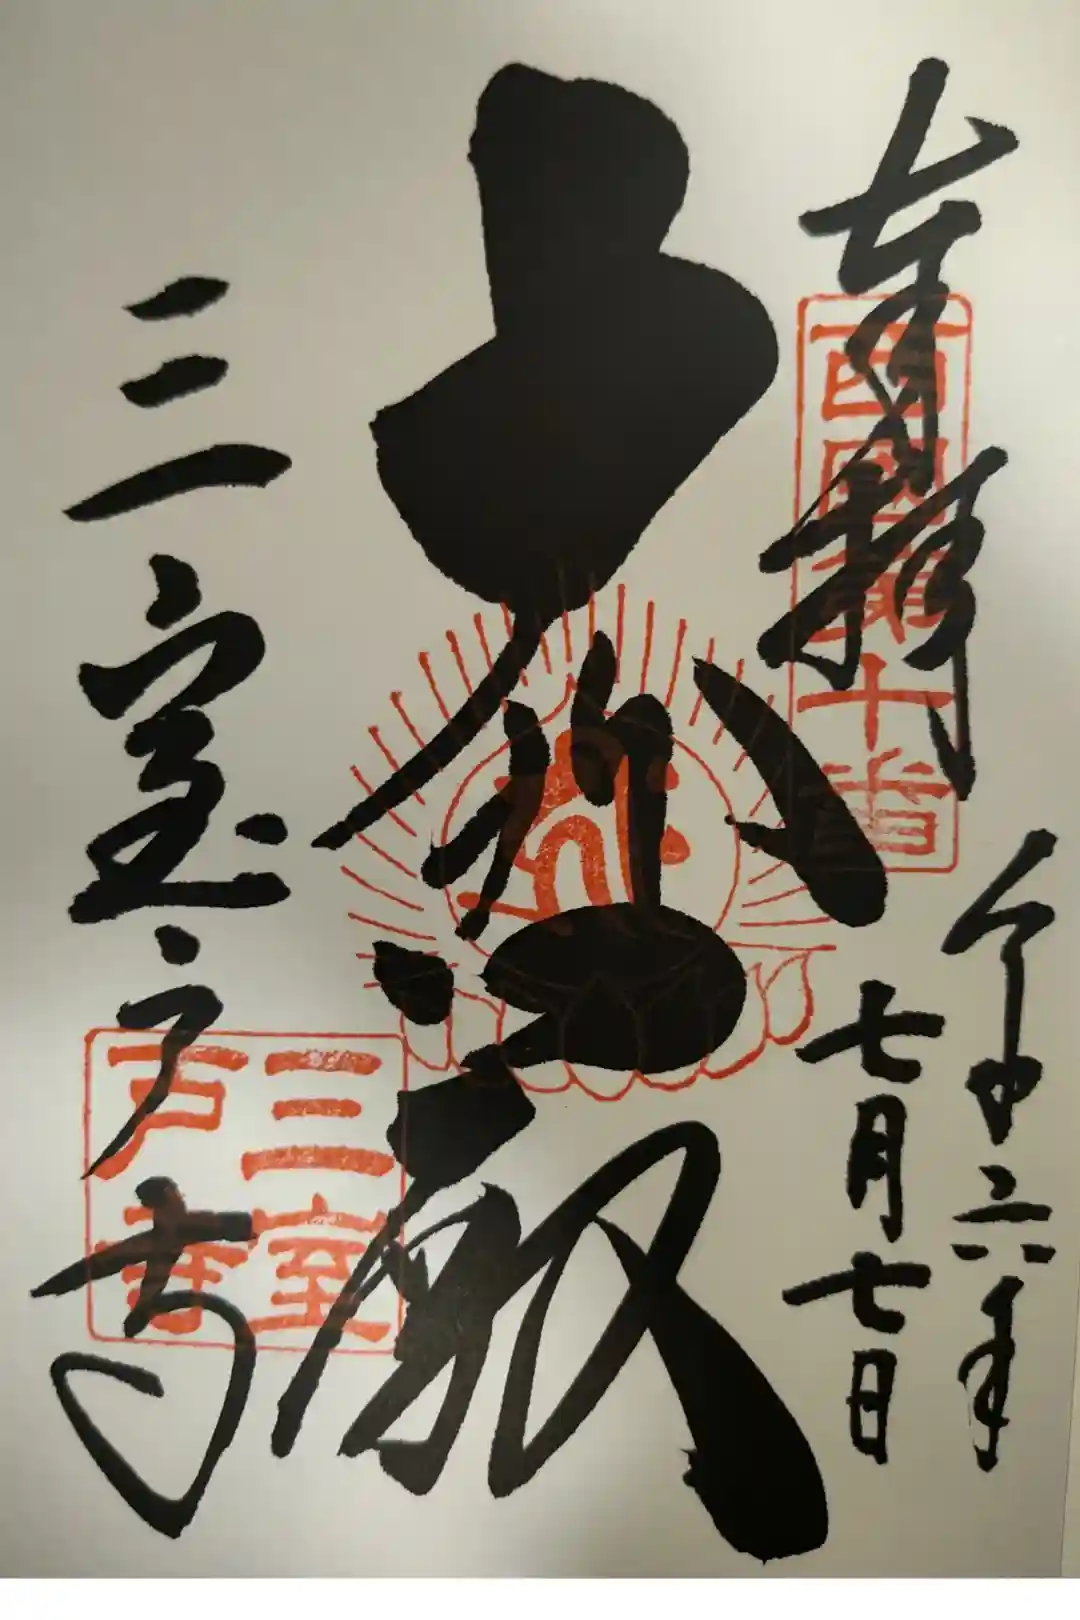 奉拝
西國第十番
令和六年
七月七日
大悲殿
三室戸寺
三室
戸寺